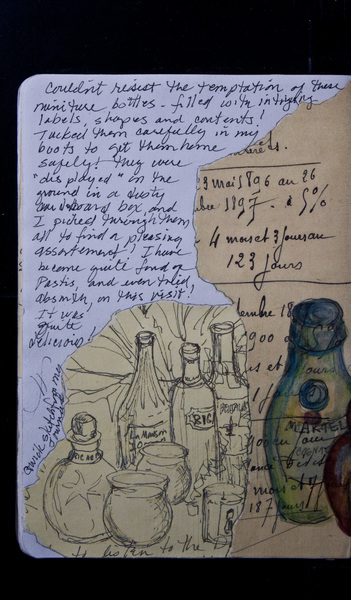 Couldn't resist the temptation of these
miniture bottles - filled with intriguing
labels, shapes and contents!
Tucked them carefully in my
boots to get them home
safely! They were
"displayed" on the
ground in a dusty
cardboard box and
I picked through them
all to find a pleasing
assortement. I have
become quite fond of
Pastis, and even tried
absinth, on this visit!
It was
quite
delicious!
Quick sketch from my
3 mai 1896 au 26
1897 - à 5%
4 mois et 3 jours au
123 jours
La Maison
BIG
MARTEL
mois
187 jours
to listen to the